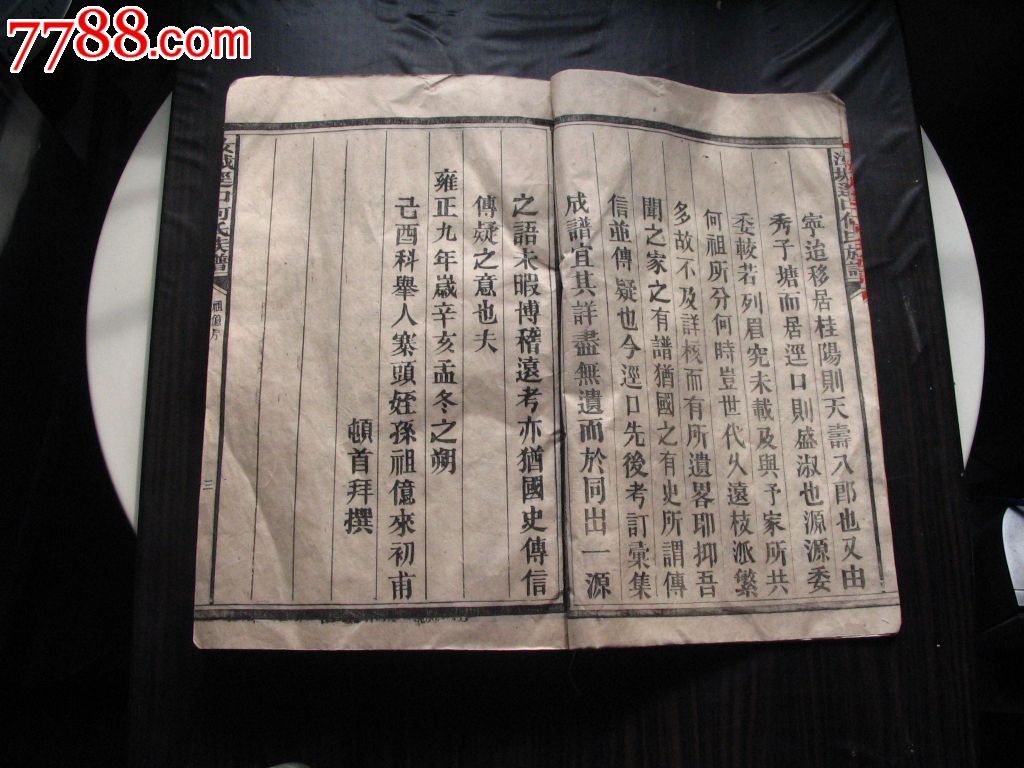 7788.com
寧追移居桂陽則天壽八郎也又由
秀子塘而居逕口則盛淑也源源委
委較若列眉究未載及與予家所共
何祖所分何時豈世代久遠枝派繁
多故不及詳核而有所遺畧耶抑吾
聞之家之有譜猶國之有史所謂傳
信並傳疑也今逕口先後考訂彙集
成譜宜其詳盡無遺而於同出一源
之語未暇博稽遠考亦猶國史傳信
傳疑之意也夫
雍正九年歲辛亥孟冬之朔
己酉科舉人寨頭姪孫祖億來初甫
頓首拜撰
逕口何氏族譜
三